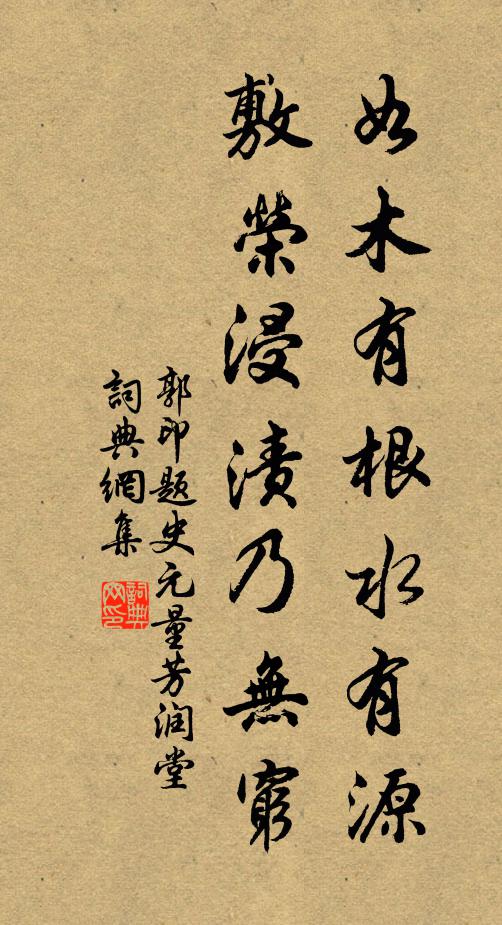 如木有根水有源
敷榮浸漬乃無窮
郭印題史元量芳润堂
詞典網集
詞典
网印